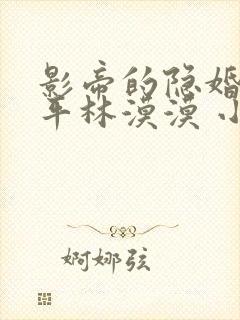 影帝的隐婚
平林漠漠 小
婀娜弦